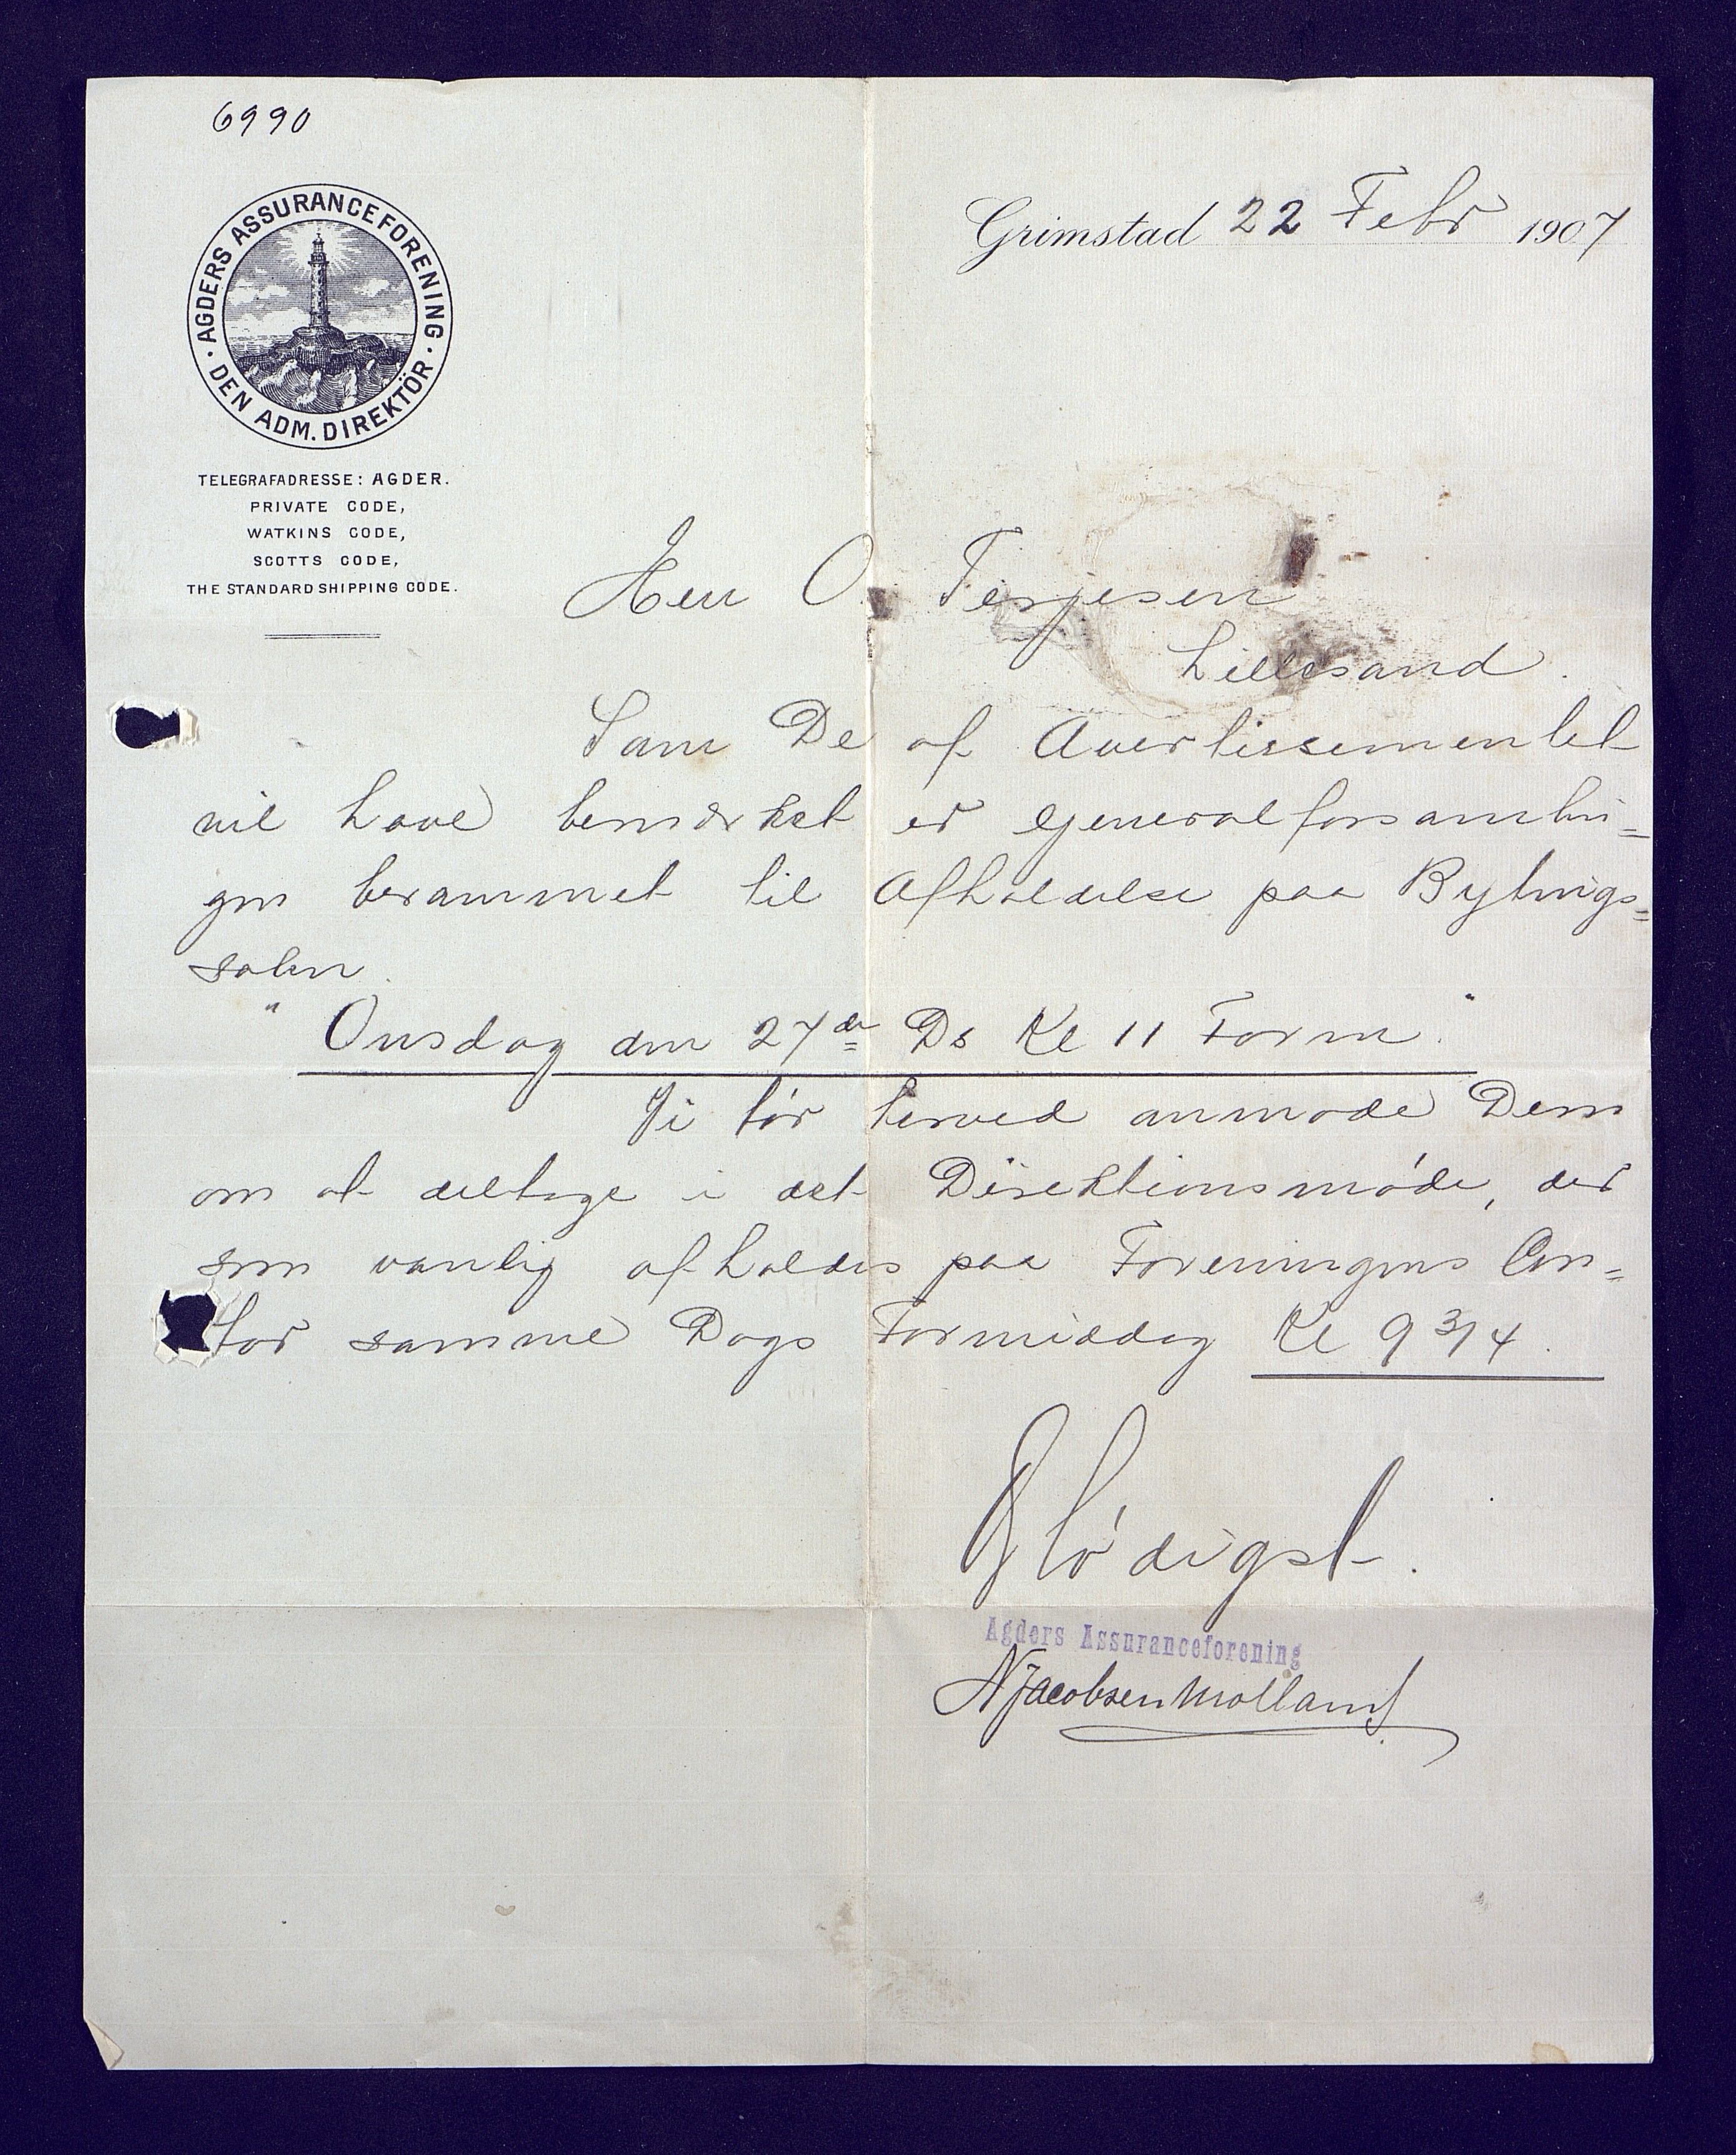 6990
AGDERS ASSURANCEFORENING
· DEN ADM. DIREKTÖR ·
TELEGRAFADRESSE: AGDER.
PRIVATE CODE,
WATKINS CODE,
SCOTTS CODE,
THE STANDARD SHIPPING CODE.
Grimstad 22 Febr 1907
Herr O. Terjesen
Lillesand.
Som De af Avertissementet
vil have bemærket er Generalforsamlin=
gen berammet til Afholdelse paa Bytings=
salen.
"Onsdag den 27de Ds Kl 11 Form."
Vi tør herved anmode Dem
om at deltage i det Direktionsmøde, der
som vanlig afholdes paa Foreningens Con=
tor samme Dags Formiddag Kl 9 3/4.
Ærbødigst.
Agders Assuranceforening
N Jacobsen Molland